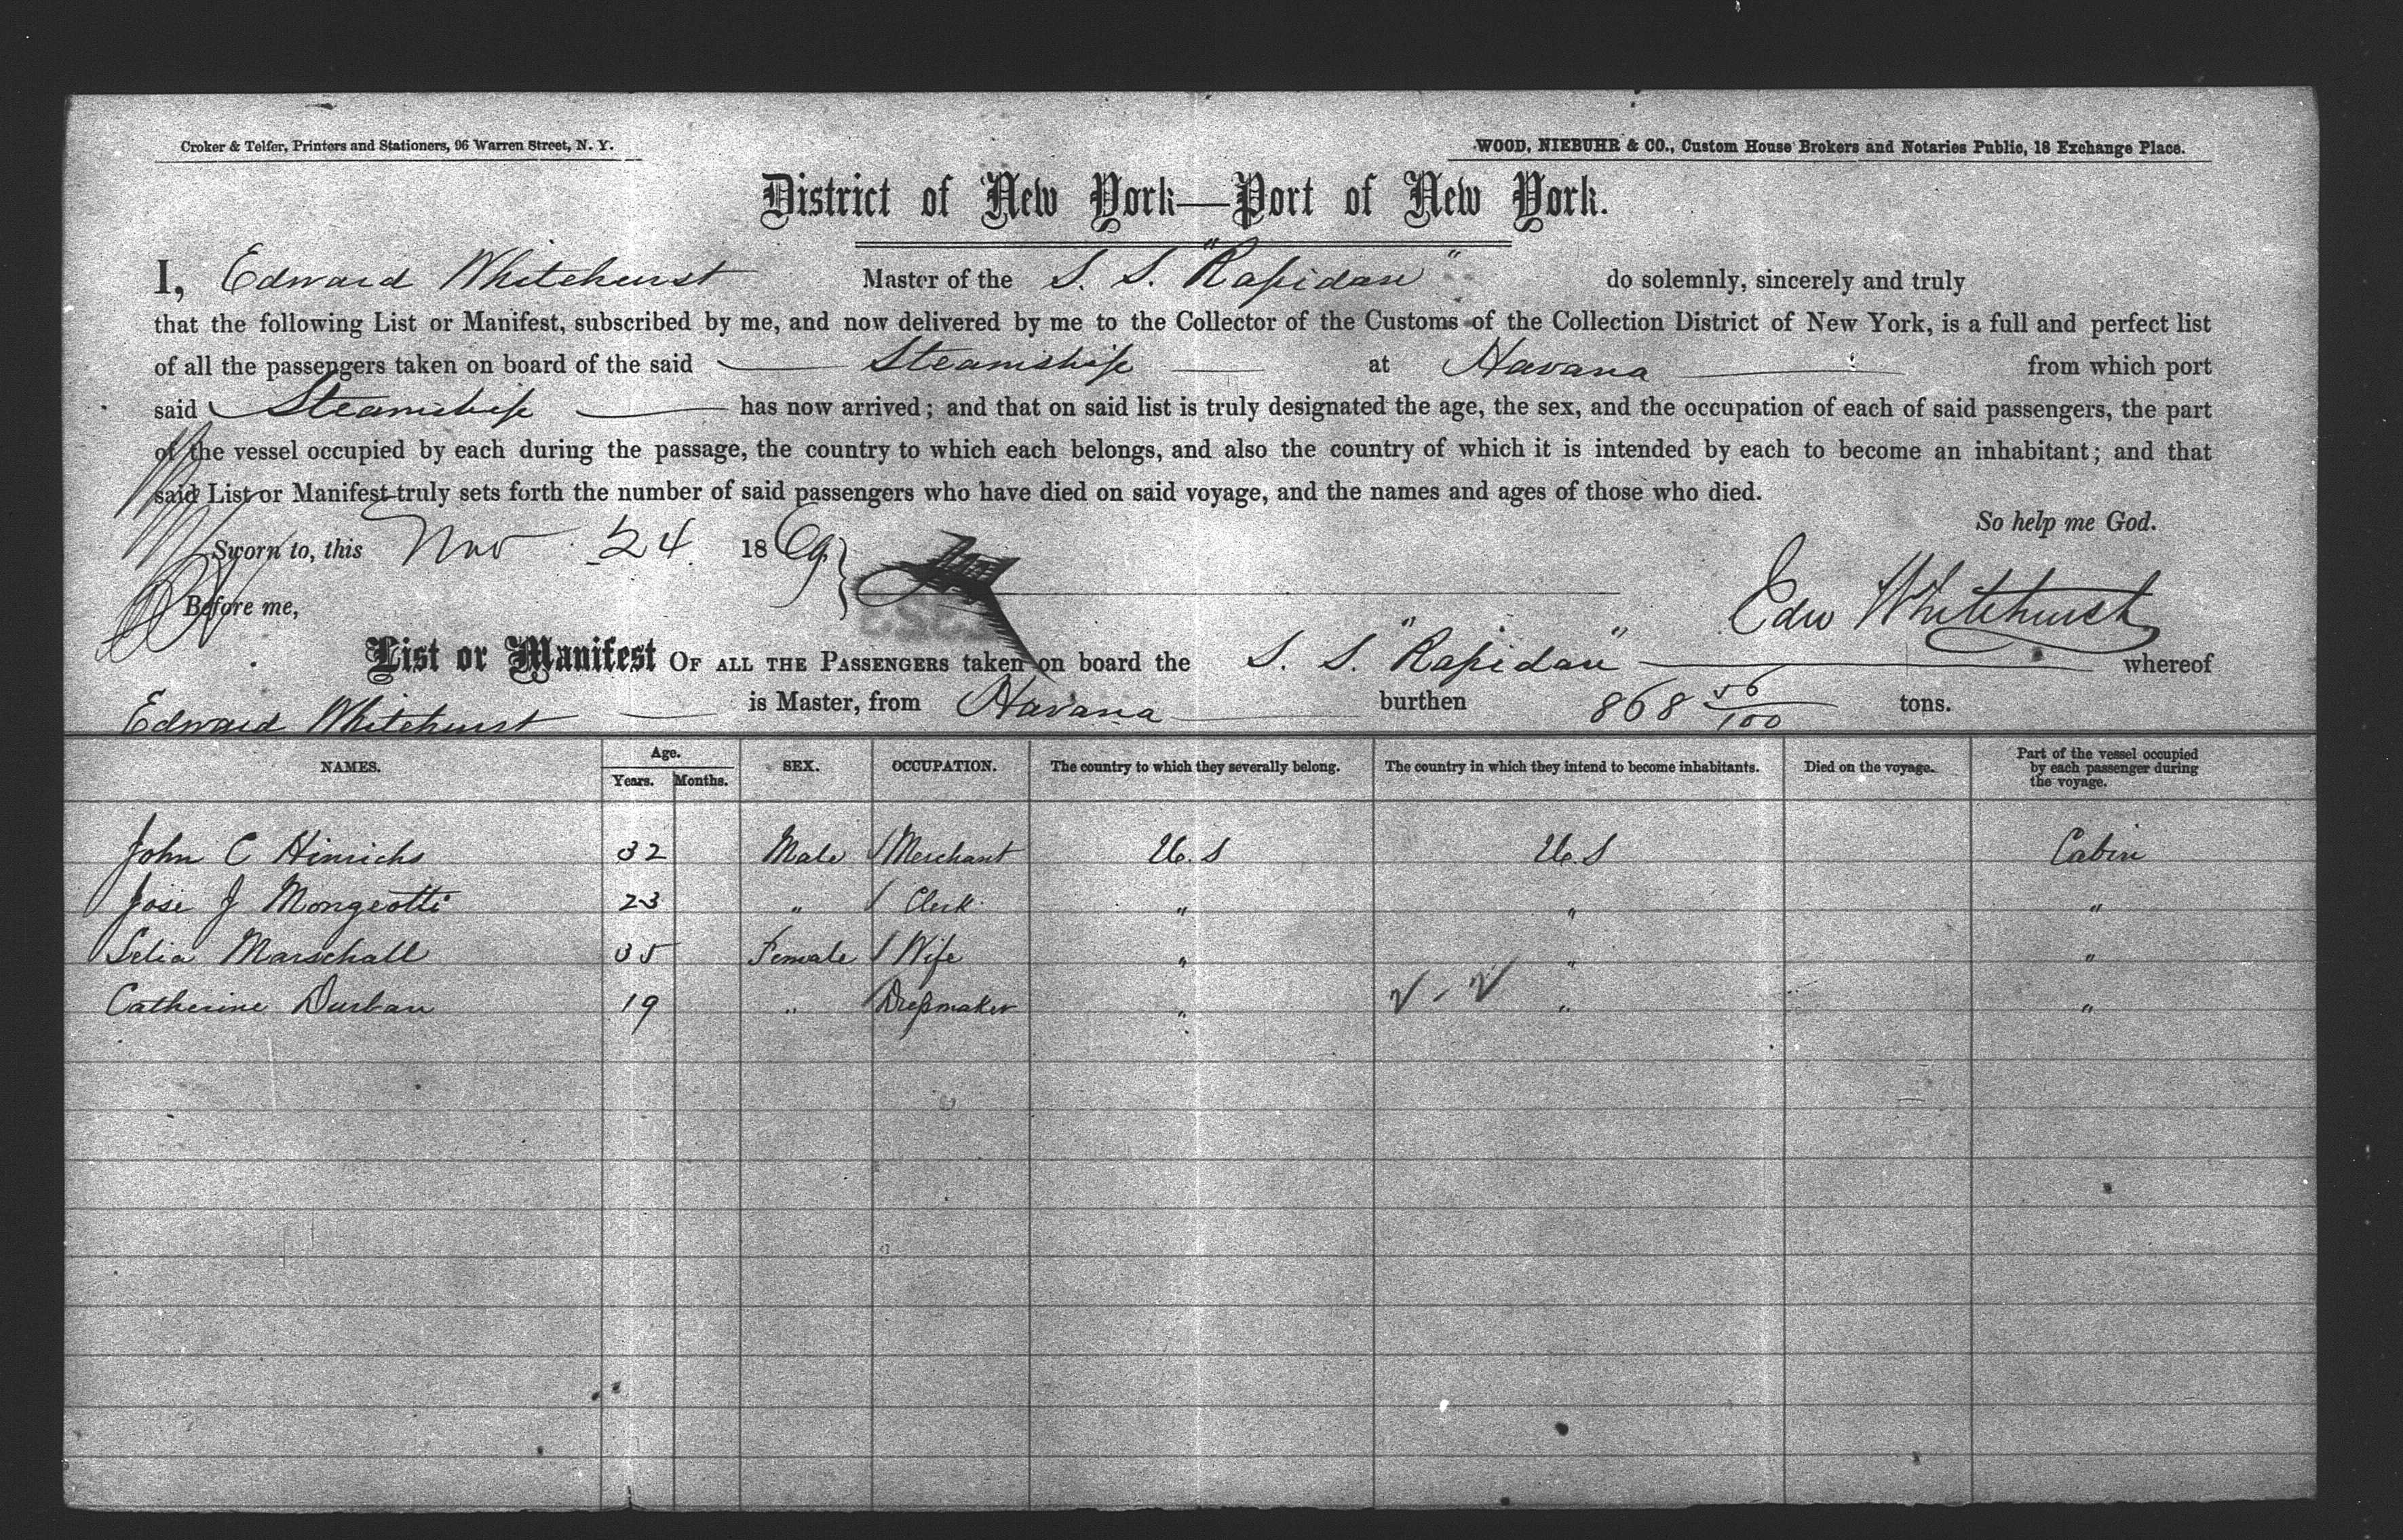 Croker & Telfer, Printers and Stationers, 96 Warren Street, N. Y.
WOOD, NIEBUHR & CO., Custom House Brokers and Notaries Public, 18 Exchange Place.
District of New York—Port of New York.
I, Edward Whitehurst Master of the S. S. "Rapidan" do solemnly, sincerely and truly
that the following List or Manifest, subscribed by me, and now delivered by me to the Collector of the Customs of the Collection District of New York, is a full and perfect list
of all the passengers taken on board of the said Steamship at Havana from which port
said Steamship has now arrived; and that on said list is truly designated the age, the sex, and the occupation of each of said passengers, the part
of the vessel occupied by each during the passage, the country to which each belongs, and also the country of which it is intended by each to become an inhabitant; and that
said List or Manifest truly sets forth the number of said passengers who have died on said voyage, and the names and ages of those who died.
So help me God.
Sworn to, this Nov 24 1869
Before me,
Edw Whitehurst
List or Manifest OF ALL THE PASSENGERS taken on board the S. S. "Rapidan" whereof
Edward Whitehurst is Master, from Havana burthen 868 56/100 tons.
NAMES. Age. Years. Months. SEX. OCCUPATION. The country to which they severally belong. The country in which they intend to become inhabitants. Died on the voyage. Part of the vessel occupied by each passenger during the voyage.
John C Hinrichs 32 Male Merchant U. S U. S Cabin
Jose J Mongeotti 23 " Clerk " " "
Selia Marschall 35 Female Wife " " "
Catherine Durban 19 " Dressmaker " " "